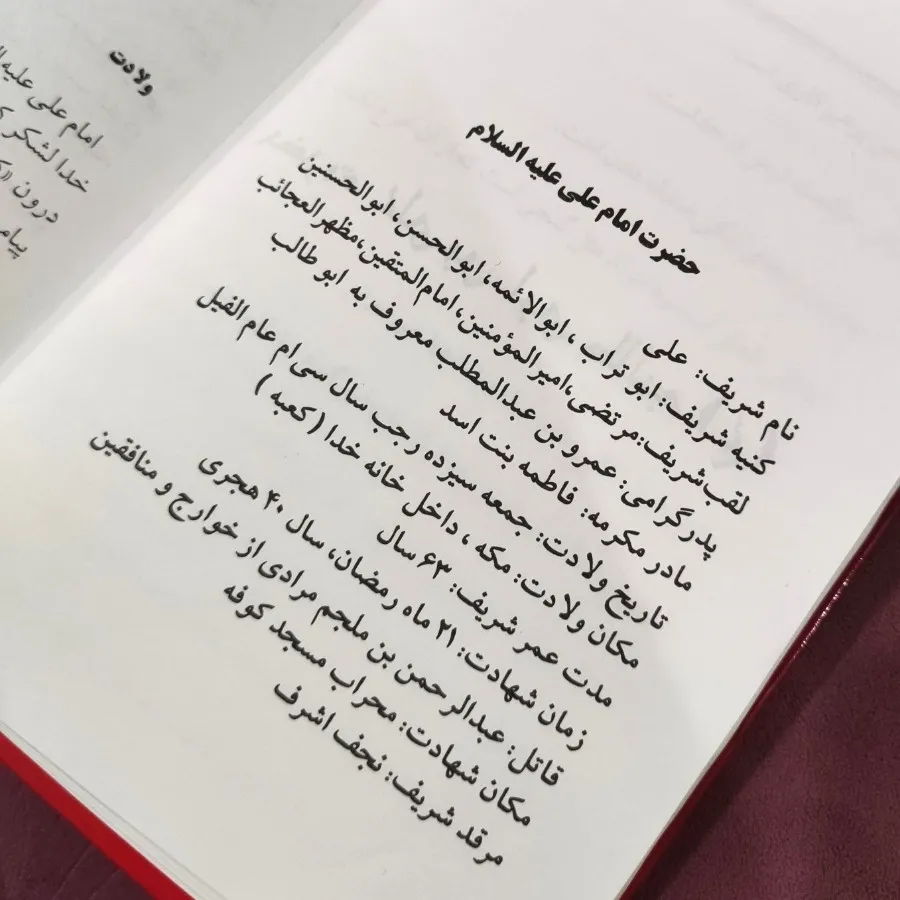 حضرت امام علی علیه السلام
نام شریف: علی
کنیه شریف: ابو تراب ، ابوالائمه، ابوالحسن، ابوالحسنین
لقب شریف:مرتضی،امیرالمؤمنین،امام المتقین،مظهرالعجائب
پدر گرامی: عمرو بن عبدالمطلب معروف به ابو طالب
مادر مکرمه: فاطمه بنت اسد
تاریخ ولادت: جمعه سیزده رجب سال سی ام عام الفیل
مکان ولادت: مکه ، داخل خانه خدا (کعبه )
مدت عمر شریف: ۶۳ سال
زمان شهادت: ۲۱ ماه رمضان، سال ۴۰ هجری
قاتل: عبدالرحمن بن ملجم مرادی از خوارج و منافقین
مکان شهادت: محراب مسجد کوفه
مرقد شریف: نجف اشرف
ولادت
امام علی علیه
خدا لشکر
درون